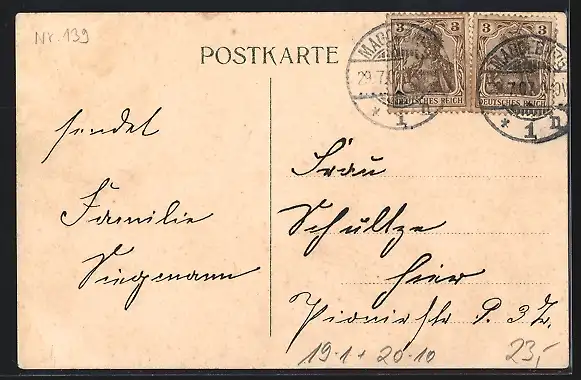 Nr. 139
POSTKARTE
3 3
3 3
DEUTSCHES REICH
DEUTSCHES REICH
MAGDEBURG
29.7.0
* 1 n
MAGDEBURG
* 1 n
sendet
Familie
Siegmann
Frau
Schultze
hier
Pionierstr P. 3 Tr.
19·1 + 20·10
23,-